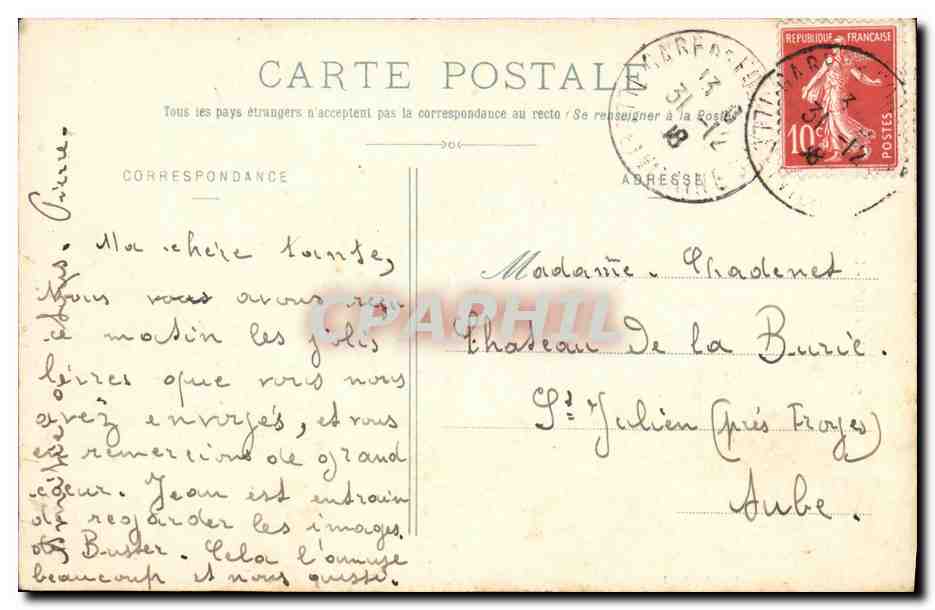 CARTE POSTALE
Tous les pays étrangers n'acceptent pas la correspondance au recto (Se renseigner à la Poste)
CORRESPONDANCE
ADRESSE
REPUBLIQUE FRANÇAISE
10c
POSTES
13
31-12
18
3
31-12
Ma chère tante,
Nous vous avons reçu
ce matin les jolis
livres que vous nous
avez envoyés, et vous
en remercions de grand
cœur. Jean est entrain
de regarder les images
de Buster. Cela l'amuse
beaucoup et nous aussi.
Pierre.
Madame Chadenet
Chateau de la Burie.
St Julien (près Troyes)
Aube.
CPAPHIL